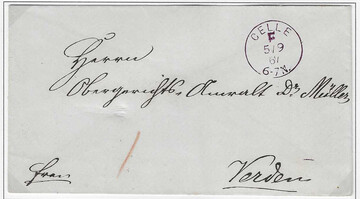 CELLE
F
5/9
81
6-7N.
Herrn
Obergerichts-Anwalt Dr. Müller
frei
Verden